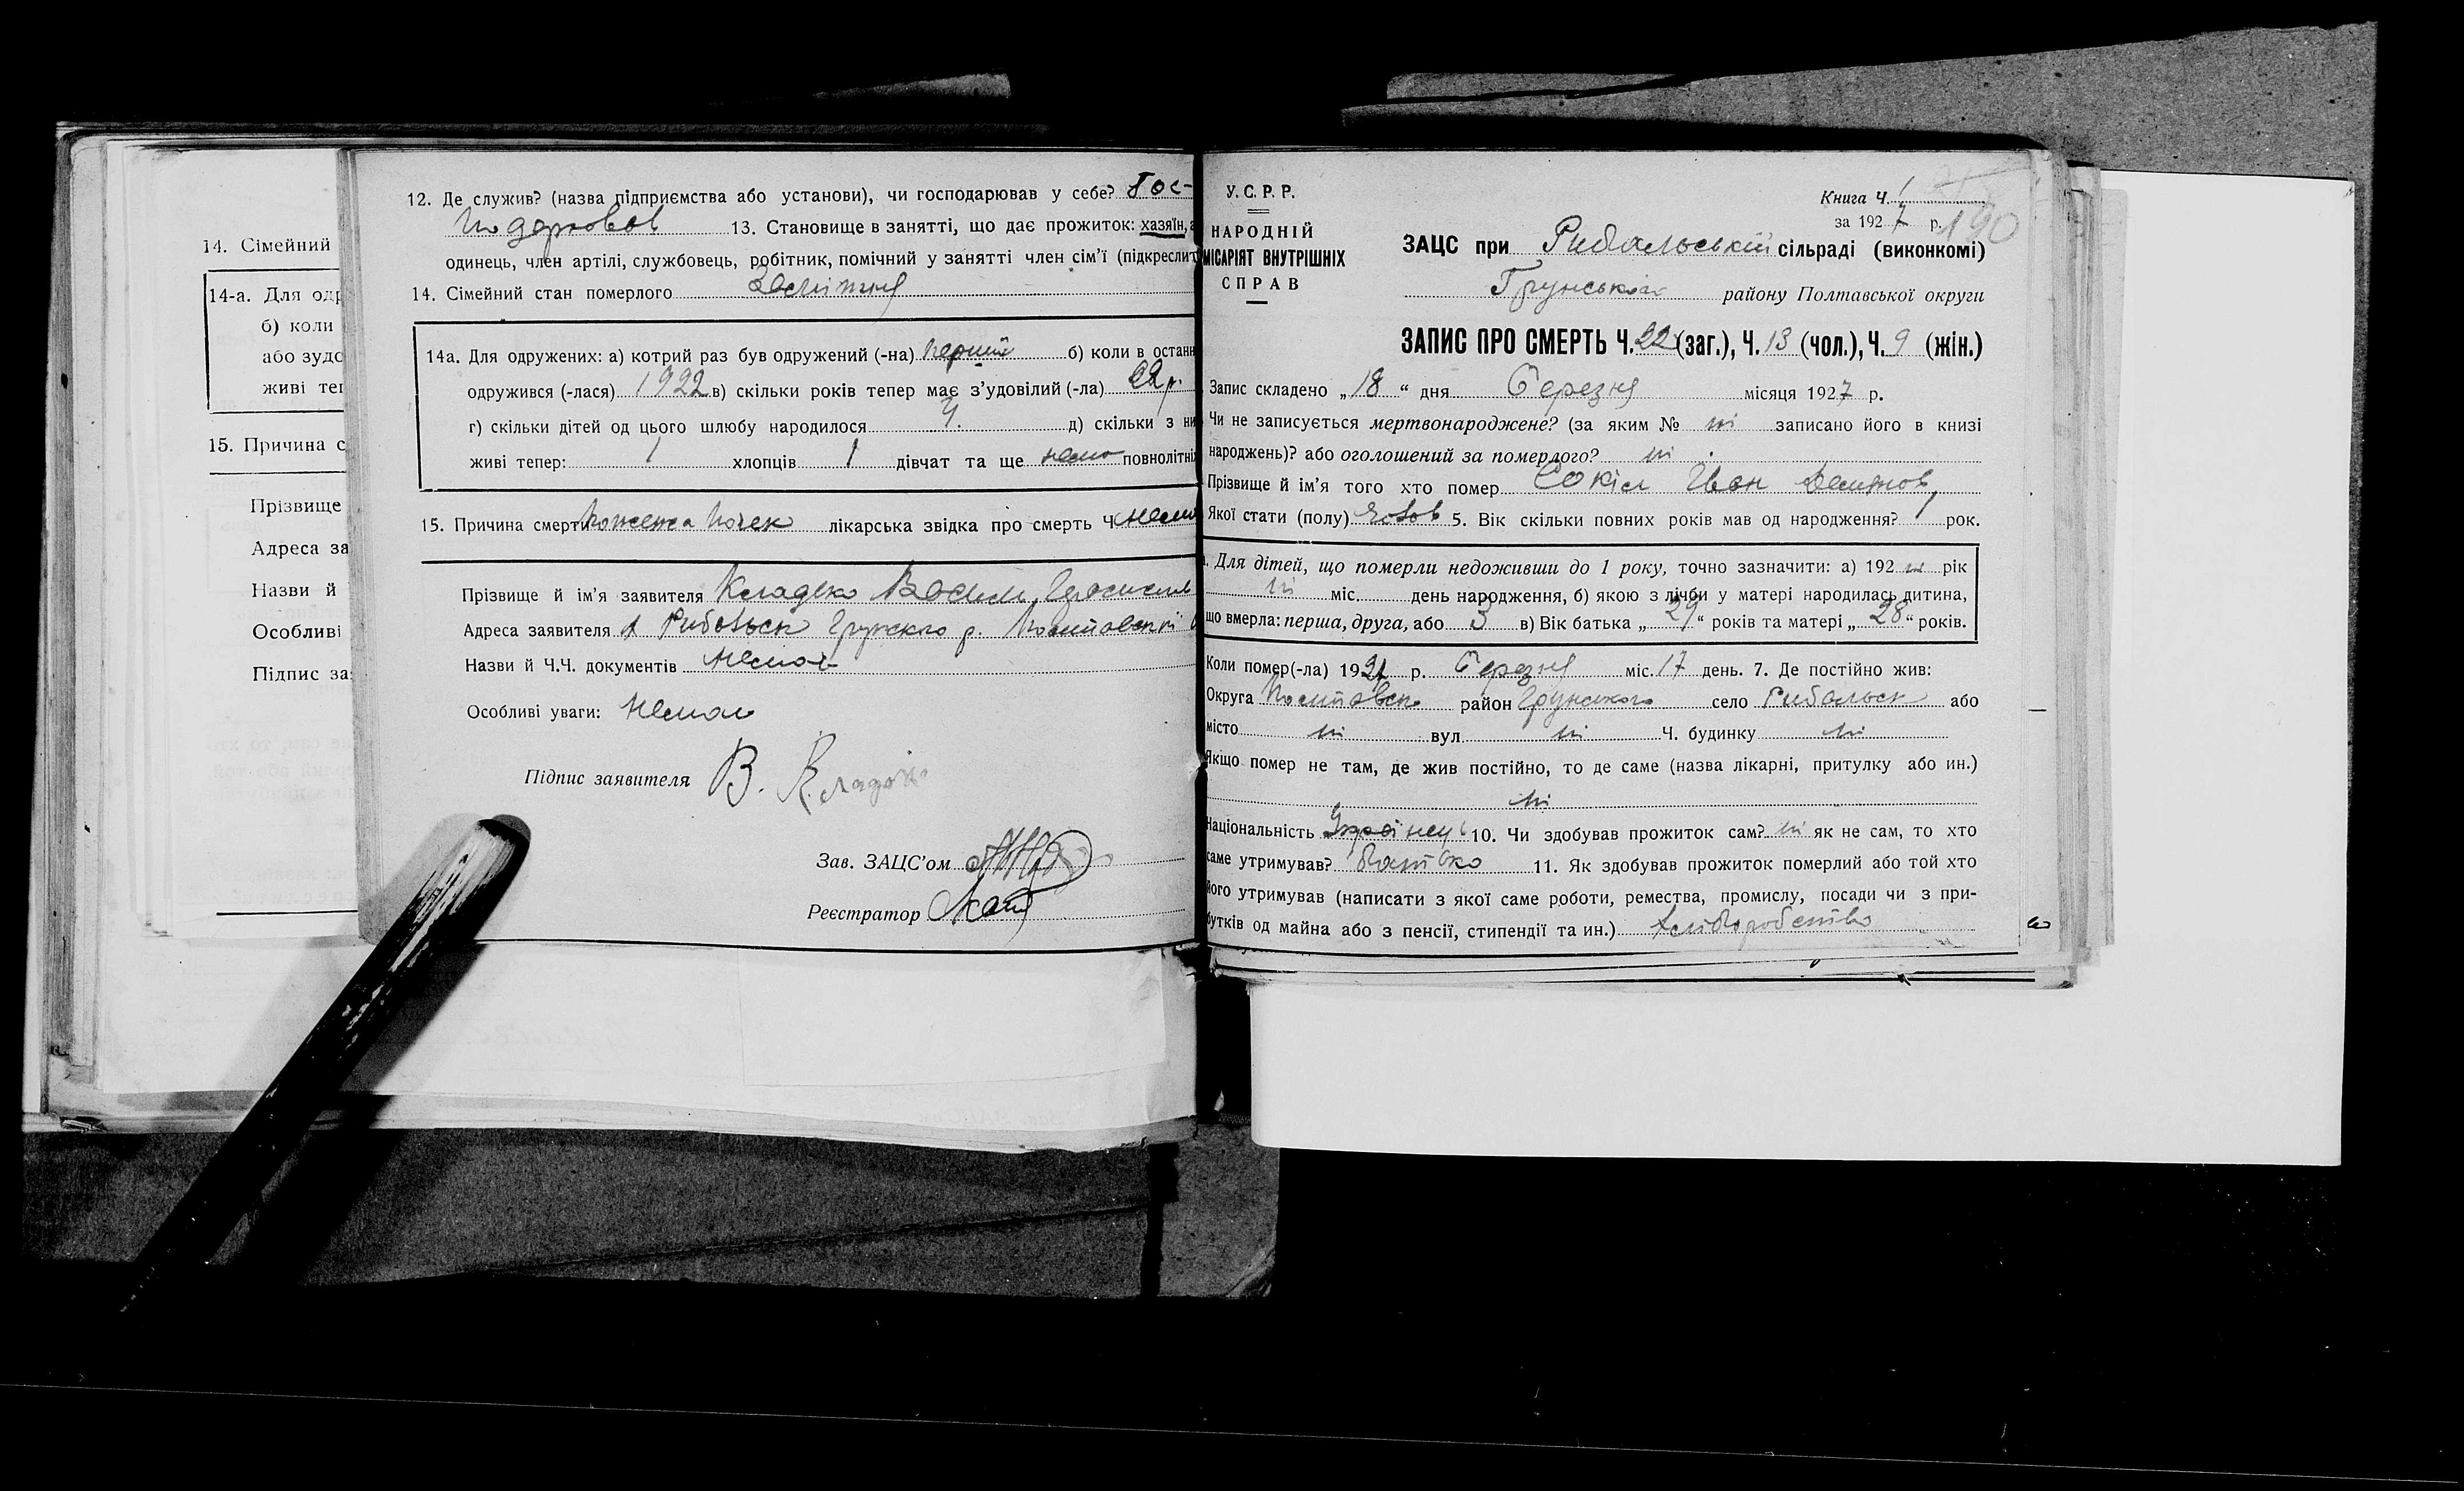 14. Сімейний
14-а. Для одр
б) коли
або зудо
живі тег
15. Причина с
Прізвище
Адреса за
Назви й
Особливі
Підпис за
12. Де служив? (назва підприємства або установи), чи господарював у себе? Гос-
13. Становище в занятті, що дає прожиток: хазяїн, а
одинець, член артілі, службовець, робітник, помічний у занятті член сім'ї (підкреслит
14. Сімейний стан померлого
14а. Для одружених: а) котрий раз був одружений (-на) перший б) коли в останн
одружився (-лася) 1922 в) скільки років тепер має з'удовілий (-ла) 22 р.
г) скільки дітей од цього шлюбу народилося 4. д) скільки з ни
живі тепер: 1 хлопців 1 дівчат та ще немає повнолітні
15. Причина смерти лікарська звідка про смерть Ч. немає
Прізвище й ім'я заявителя Кладко Василь
Адреса заявителя Рибальськ Грунского р. Полтавскої
Назви й Ч.Ч. документів немає
Особливі уваги: Немає
Підпис заявителя В. Кладко
Зав. ЗАЦС'ом
Реєстратор
У.С.Р.Р.
НАРОДНІЙ
МІСАРІЯТ ВНУТРІШНІХ
СПРАВ
Книга Ч. 1
за 1927 р. 190
ЗАЦС при Рибальській сільраді (виконкомі)
Грунського району Полтавської округи
ЗАПИС ПРО СМЕРТЬ Ч. 22 (заг.), Ч. 13 (чол.), Ч. 9 (жін.)
Запис складено „18“ дня Березня місяця 1927 р.
Чи не записується мертвонароджене? (за яким № ні записано його в книзі
народжень)? або оголошений за померлого? ні
Прізвище й ім'я того хто помер Сокіл Іван Демянов
Якої стати (полу) 5. Вік скільки повних років мав од народження? 1 рок.
Для дітей, що померли недоживши до 1 року, точно зазначити: а) 192 рік
ні міс. день народження, б) якою з лічби у матері народилась дитина,
що вмерла: перша, друга, або 3 в) Вік батька „29“ років та матері „28“ років.
Коли помер(-ла) 1927 р. Березня міс. 17 день. 7. Де постійно жив:
Округа Полтавськ район Грунського село Рибальськ або
місто ні вул. ні Ч. будинку ні
Якщо помер не там, де жив постійно, то де саме (назва лікарні, притулку або ин.)
ні
Національність Українець 10. Чи здобував прожиток сам? ні як не сам, то хто
саме утримував? батько 11. Як здобував прожиток померлий або той хто
його утримував (написати з якої саме роботи, ремества, промислу, посади чи з при-
бутків од майна або з пенсії, стипендії та ин.) хліборобство